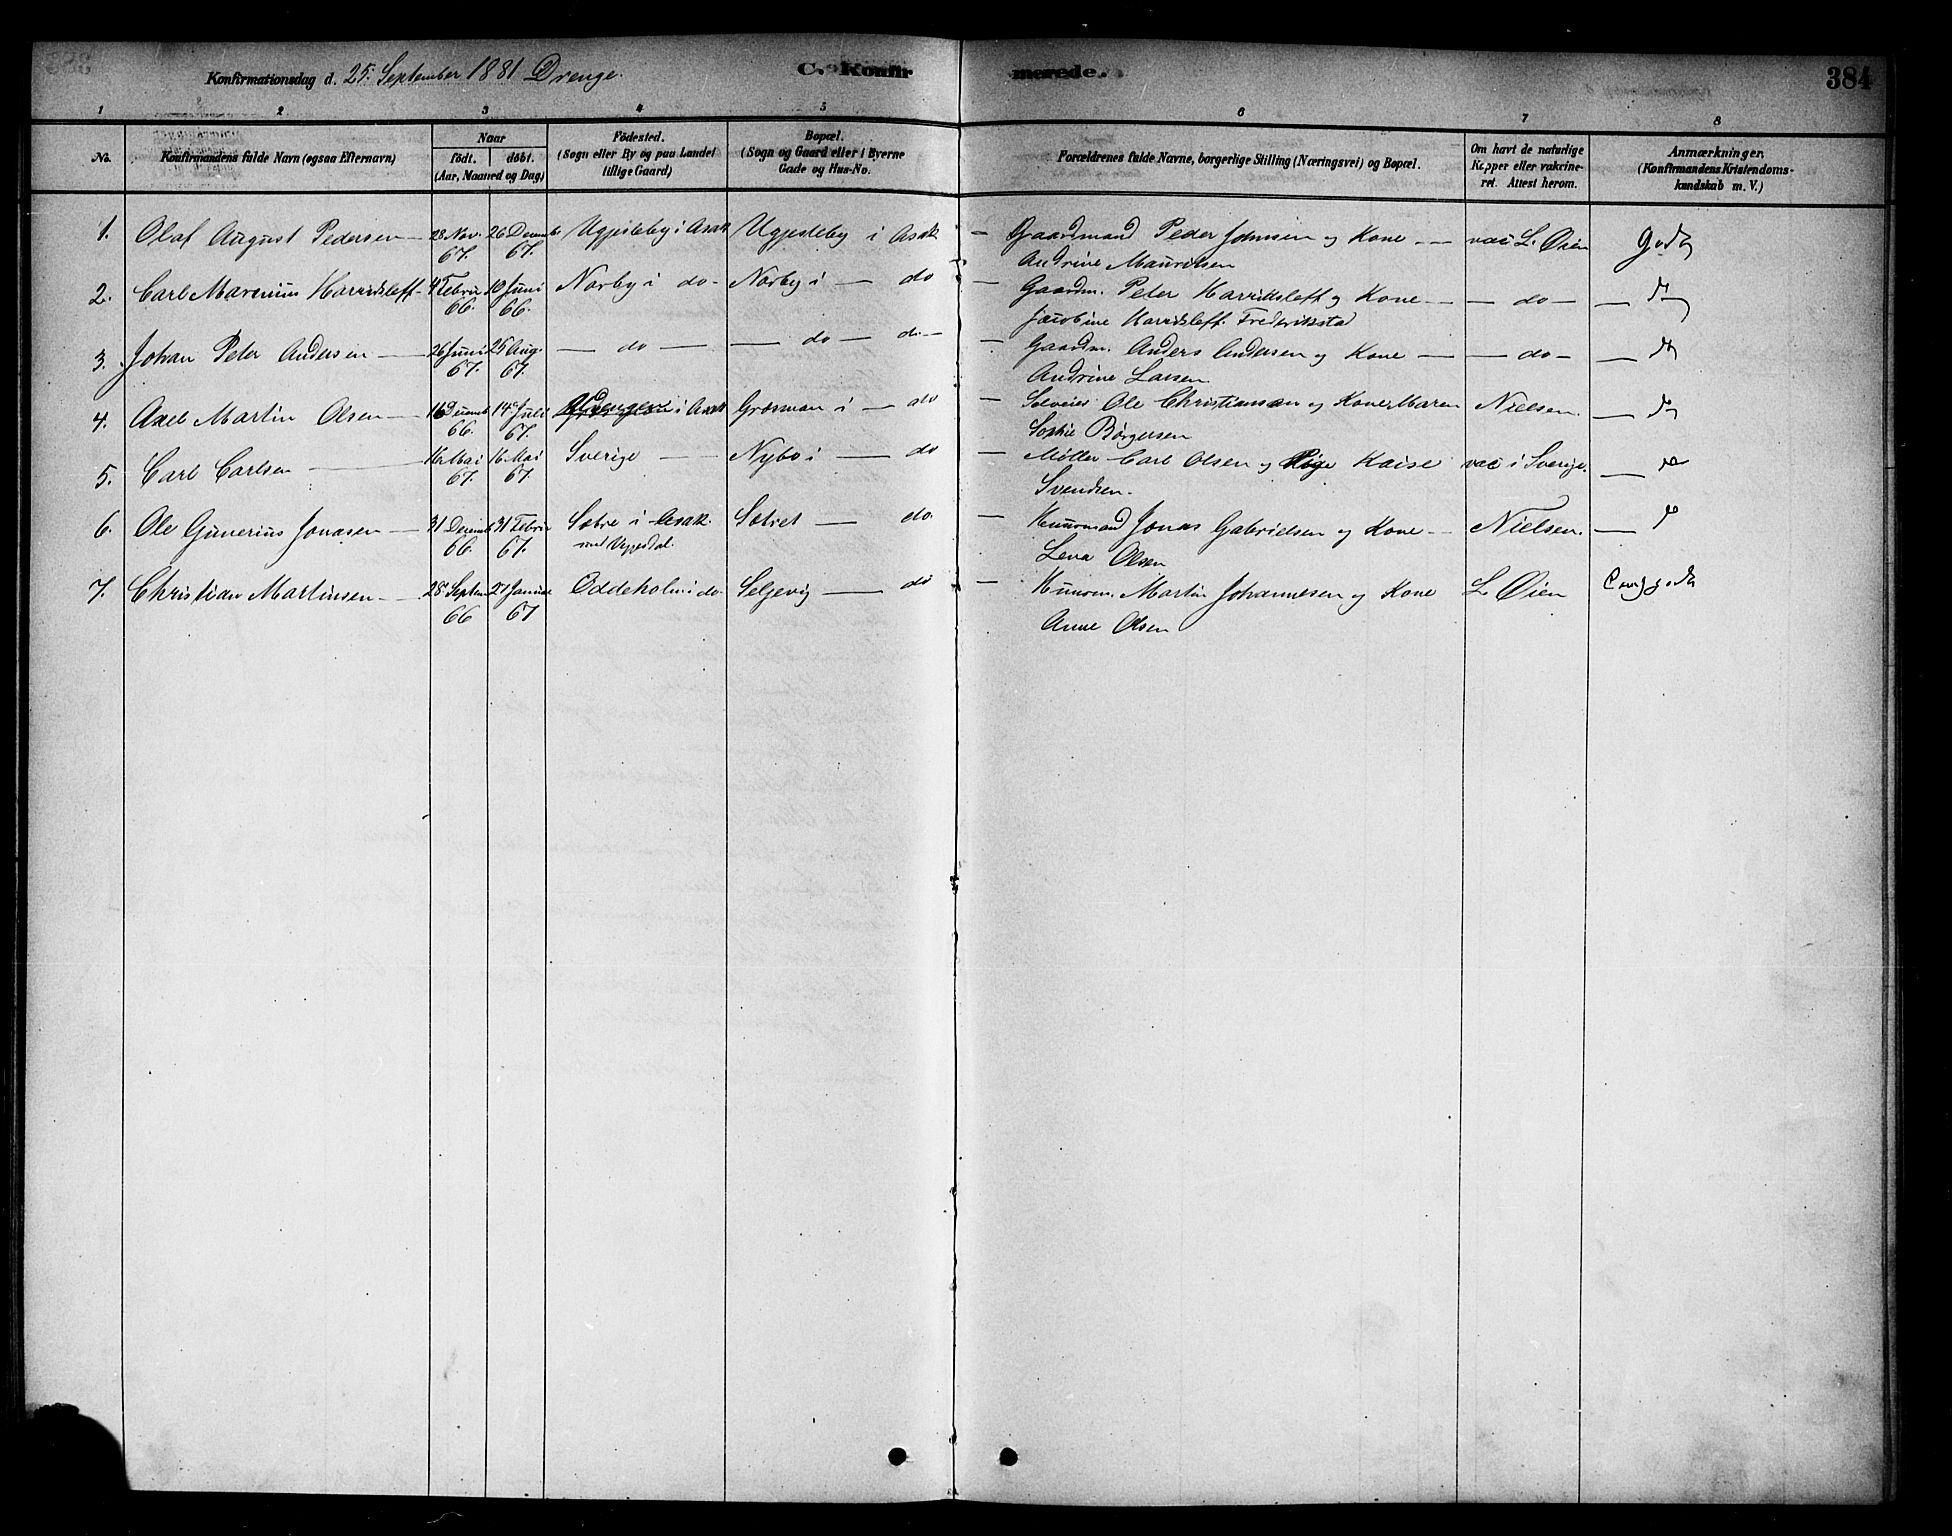 Konfirmationsdag d. 25. September 1881 Drenge. C. Konfirmerede. 384
1 2 3 4 5 6 7 8
No. Konfirmandens fulde Navn (ogsaa Efternavn) Naar født. døbt. (Aar, Maaned og Dag) Fødested. (Sogn eller By og paa Landet tillige Gaard) Bopæl. (Sogn og Gaard eller i Byerne Gade og Hus-No. Forældrenes fulde Navne, borgerlige Stilling (Næringsvei) og Bopæl. Om havt de naturlige Kopper eller vakcineret. Attest herom. Anmærkninger. (Konfirmandens Kristendomskundskab m. V.)
1. Olaf August Pedersen 28 Nov. 67. 26 Decemb 67. i Asak i Asak Gaardmand Peder Johnsen og Kone vac L. Øien Godt
Andrine Mauritsen
2. Carl Marenius Harridsleff 4 Febru 66. 10 Juni 66. Norby i do Norby i do Gaardm. Peter Harridsleff og Kone do
Jacobine Harridsleff. Frederikstad
3. Johan Peter Andersen 26 Juni 67. 25 Aug. 67. do do do Gaardm. Anders Andersen og Kone do
Andrine Larsen
4. Axel Martin Olsen 16 Decemb 66. 14 Juli 67. i Asak Grosman i do Selveier Ole Christiansen og Kone Maren Nielsen.
Sophie Börgersen
5. Carl Carlsen 16 Mai 67. 16 Mai 67. Sverige Nybo i do Møller Carl Olsen og Pige Kaise vac i Sverige.
Svendsen.
6. Ole Gunerius Jonasen 31 Decemb 66. 31 Febru 67. Sætre i Asak. Sætret do. Huusmand Jonas Gabrielsen og Kone Nielsen.
Lena Olsen
7. Christian Martinsen 28 Septem 66 27 Januar 67 Oddeholm i do Seljevig do Huusm. Martin Johannesen og Kone L. Øien
Anne Olsen